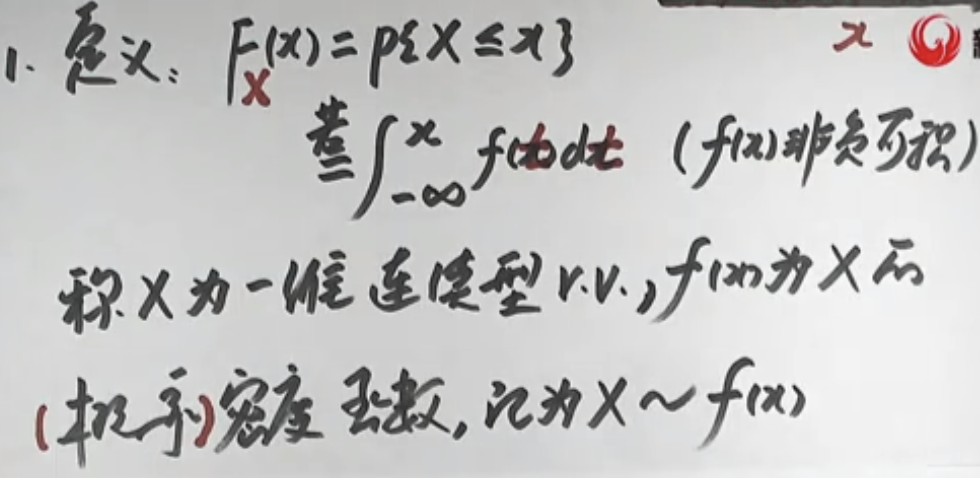 1. 定义: F_X(x) = P{X ≤ x} x
若= ∫_{-∞}^{x} f(t)dt (f(x)非负可积)
称 X 为一维连续型 r.v., f(x)为 X 的
(概率)密度函数, 记为 X ~ f(x)